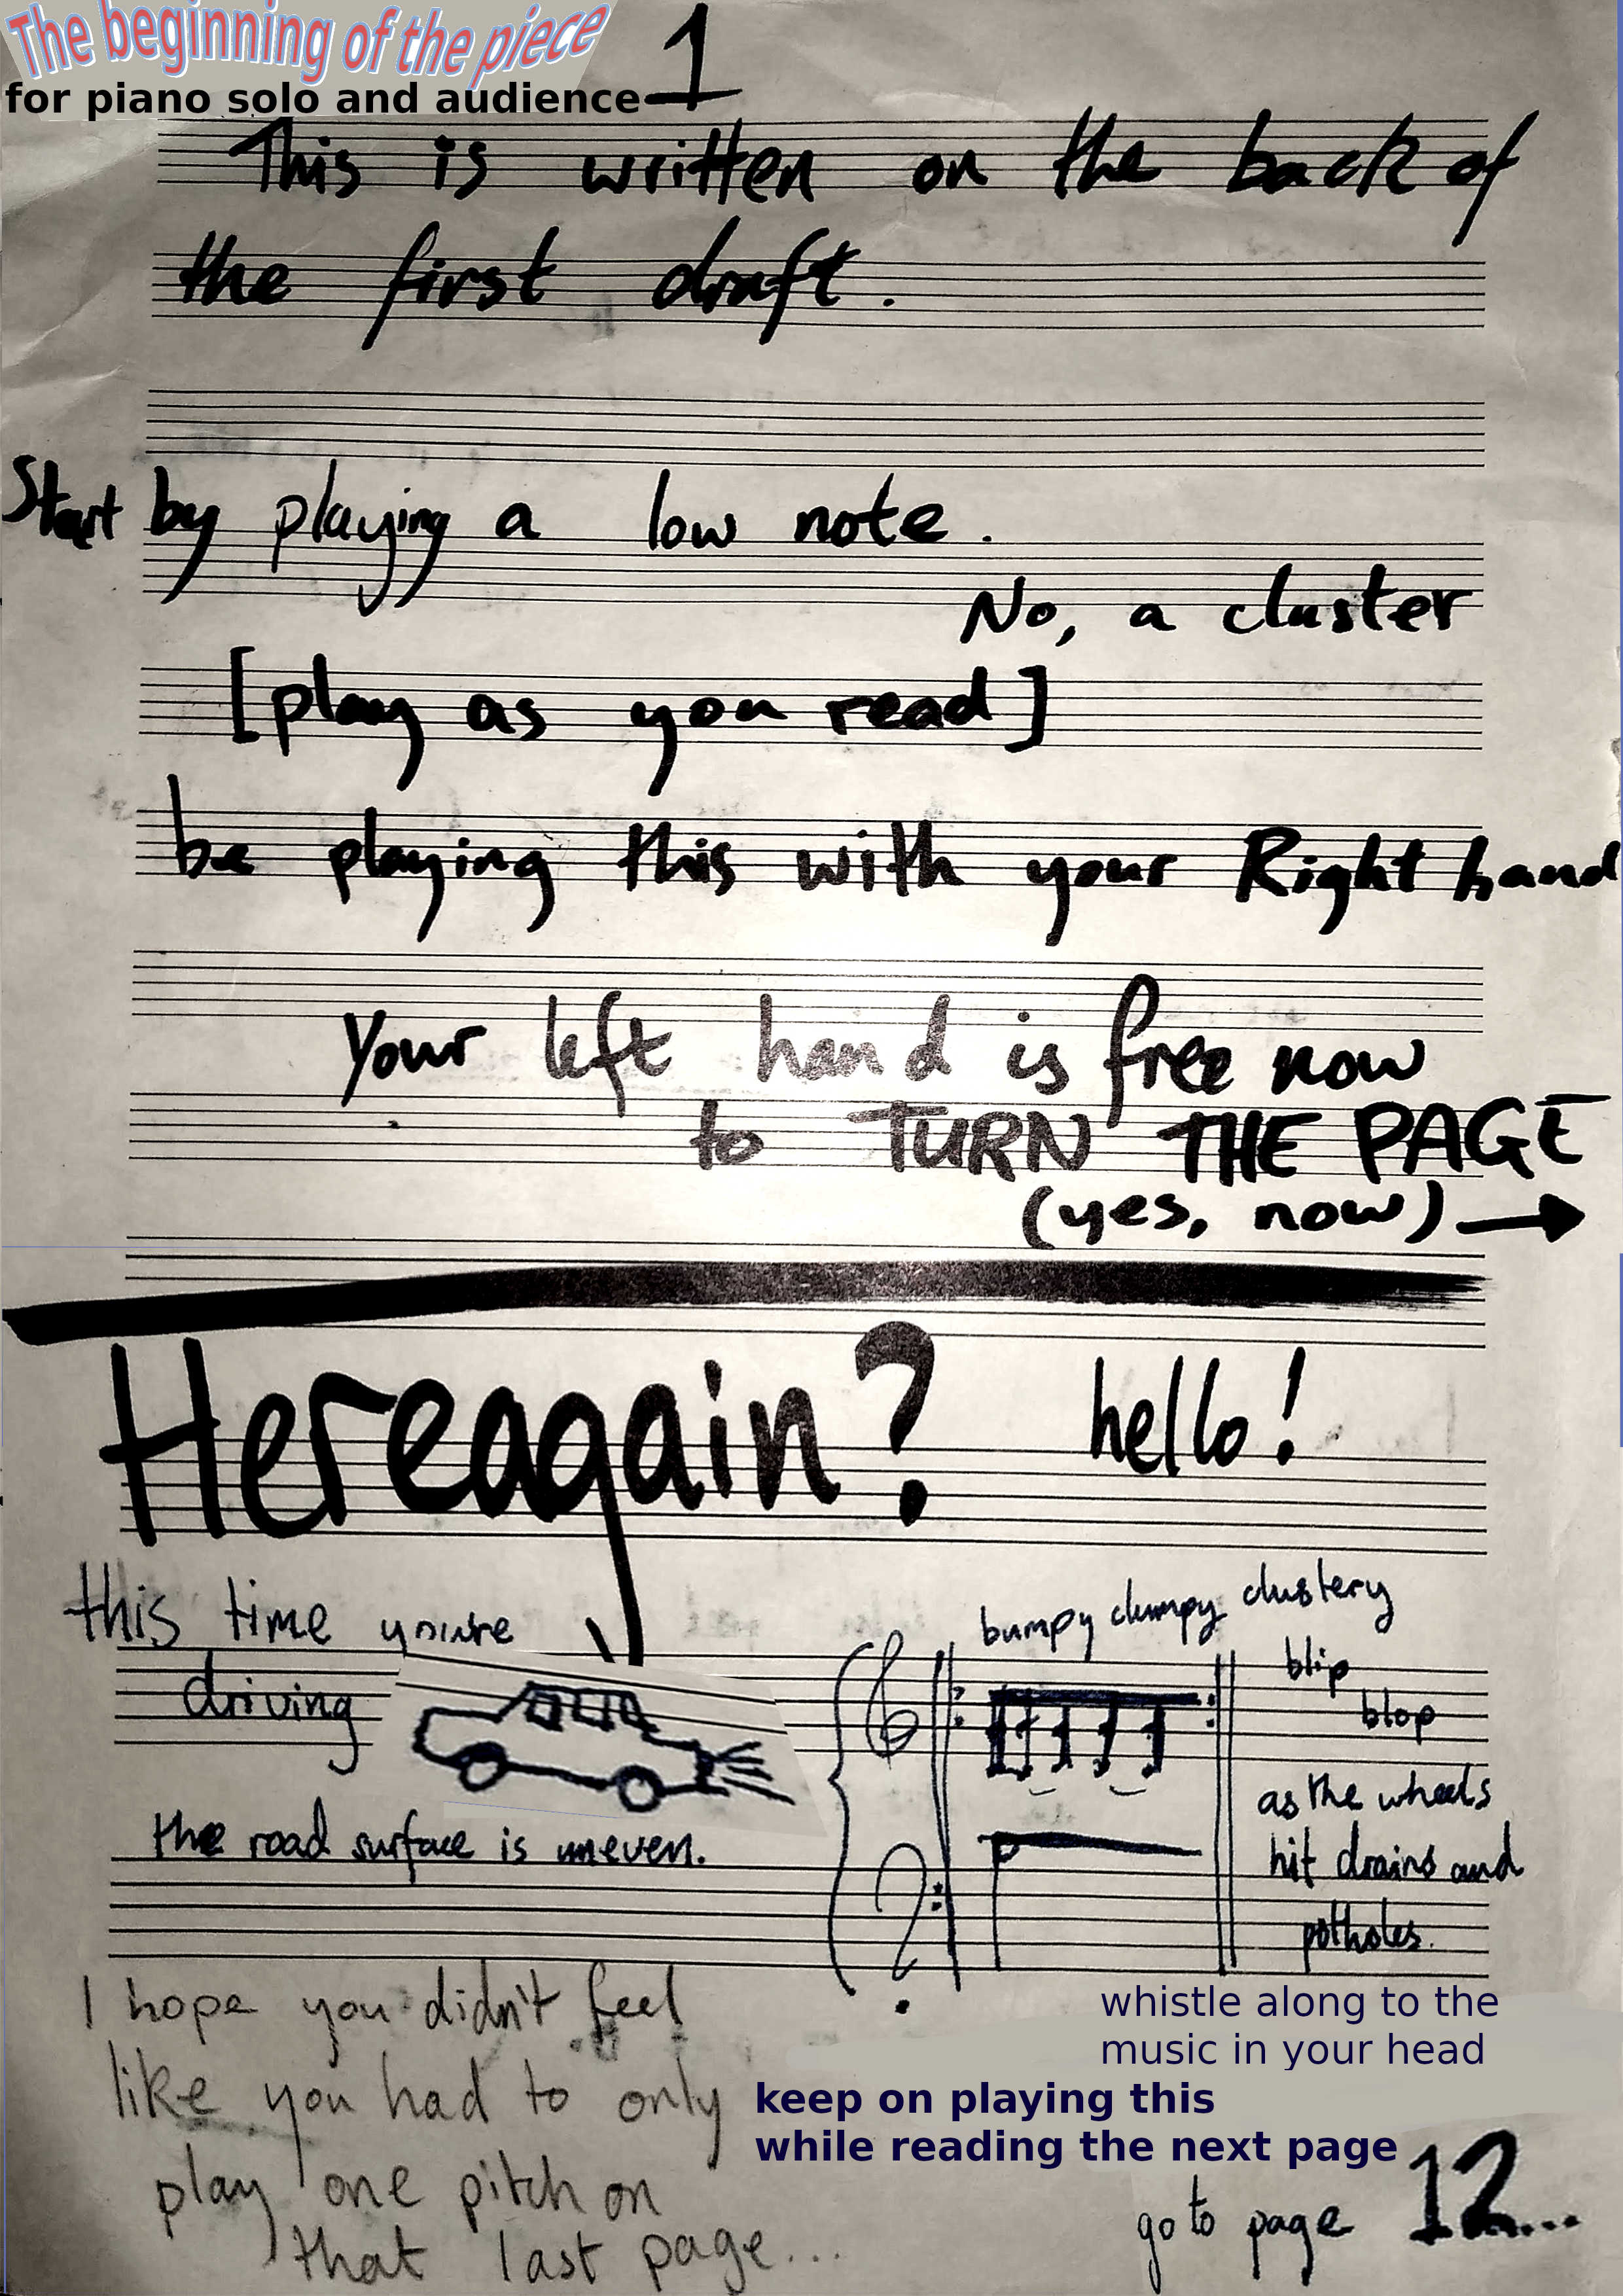 The beginning of the piece
1
for piano solo and audience
This is written on the back of
the first draft.
Start by playing a low note.
No, a cluster
[play as you read]
be playing this with your Right hand
Your left hand is free now
to TURN THE PAGE
(yes, now)
Hereagain? hello!
this time you're
driving
the road surface is uneven.
bumpy clumpy clustery
blip
blop
as the wheels
hit drains and
potholes.
I hope you didn't feel
like you had to only
play one pitch on
that last page...
whistle along to the
music in your head
keep on playing this
while reading the next page
go to page 12...